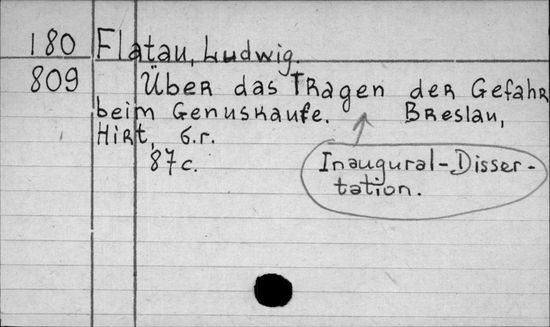 180 Flatau, Ludwig.
809 Über das Tragen der Gefahr
beim Genuskaufe. Breslau,
Hirt, s.r.
87c.
Inaugural-Disser-
tation.